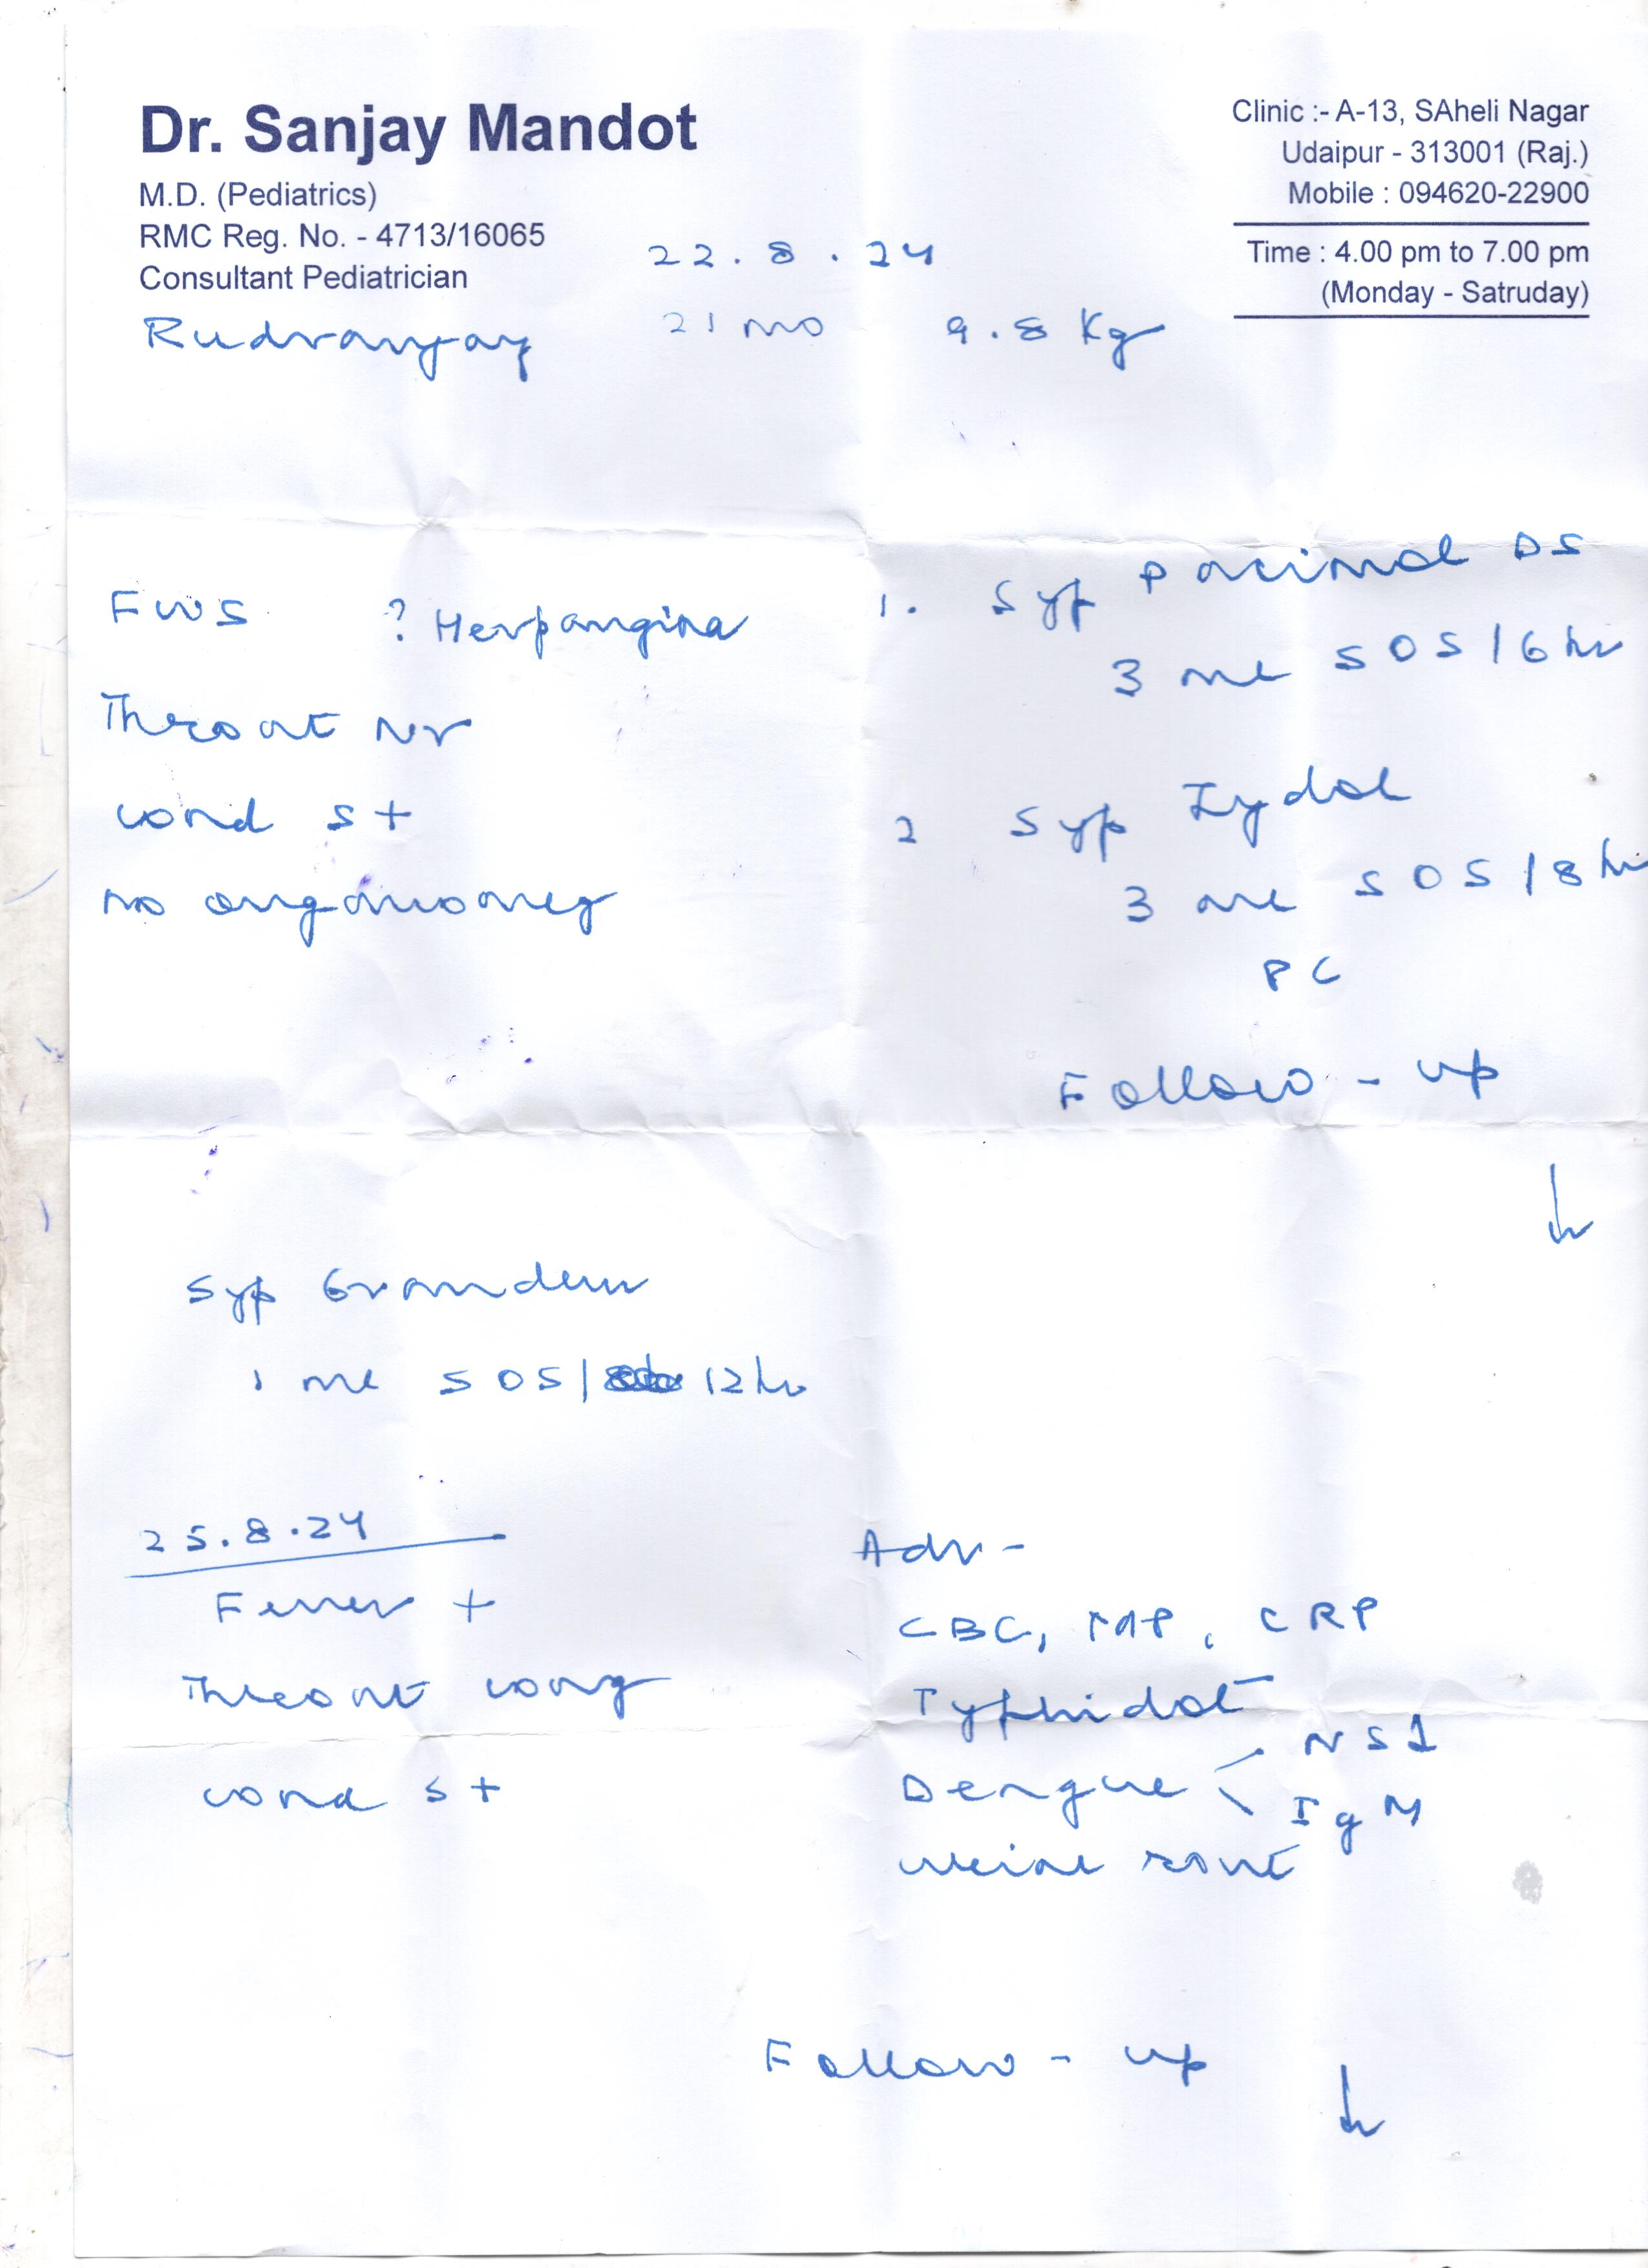 Dr. Sanjay Mandot
M.D. (Pediatrics)
RMC Reg. No. - 4713/16065
Consultant Pediatrician
Clinic :- A-13, SAheli Nagar
Udaipur - 313001 (Raj.)
Mobile : 094620-22900
Time : 4.00 pm to 7.00 pm
(Monday - Satruday)
22.8.24
Rudranjay 21 mo 9.8 Kg
FWS ? Herpangina
Throat Nr
cond s+
no organomeg
1. Syp Pacimol DS
3 ml SOS/6 hr
2 Syp Zydol
3 ml SOS/8 hr
PC
Follow-up
Syp Grandem
1 ml SOS/ 12 hr
25.8.24
Fever +
Throat cong
cond s+
Adv-
CBC, MP, CRP
Typhidot
Dengue < NS1
IgM
urine rout
Follow-up